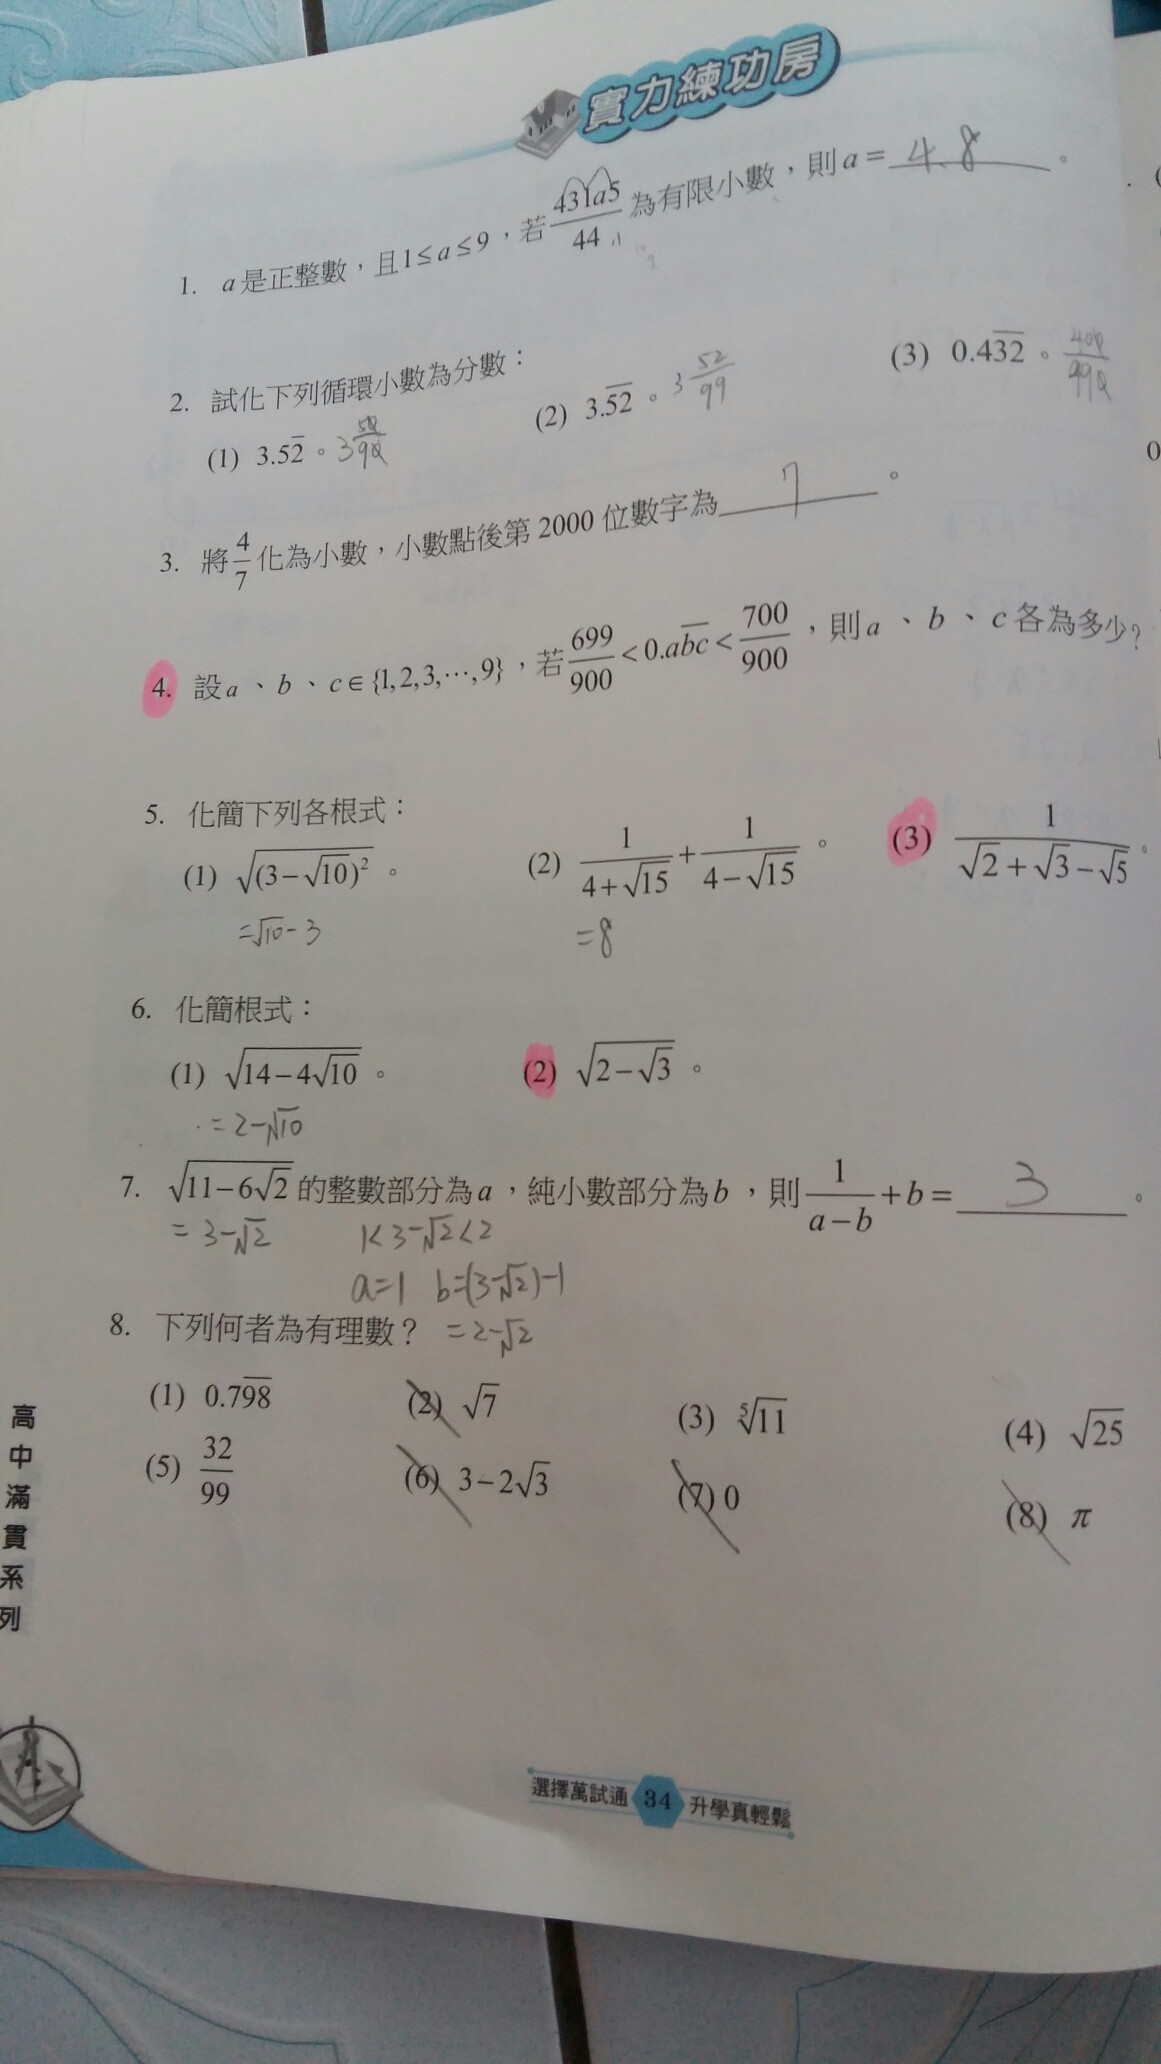 實力練功房
1. a是正整數，且1≤a≤9，若431a5/44為有限小數，則a=4.8。
2. 試化下列循環小數為分數：
(1) 3.52̅。 (2) 3.5̅2̅。3 52/99 (3) 0.43̅2̅。
3. 將4/7化為小數，小數點後第2000位數字為7。
4. 設a、b、c∈{1,2,3,⋯,9}，若699/900<0.ab̅c̅<700/900，則a、b、c各為多少？
5. 化簡下列各根式：
(1) √((3−√10)²)。 (2) 1/(4+√15)+1/(4−√15)。 (3) 1/(√2+√3−√5)。
=√10-3 =8
6. 化簡根式：
(1) √(14−4√10)。 (2) √(2−√3)。
=2-√10
7. √(11−6√2)的整數部分為a，純小數部分為b，則1/(a−b)+b=3。
=3-√2 1<3-√2<2
a=1 b=(3-√2)-1
8. 下列何者為有理數？ =2-√2
(1) 0.79̅8̅ (2) √7 (3) ⁵√11 (4) √25
(5) 32/99 (6) 3−2√3 (7) 0 (8) π
高中滿貫系列
選擇萬試通 34 升學真輕鬆